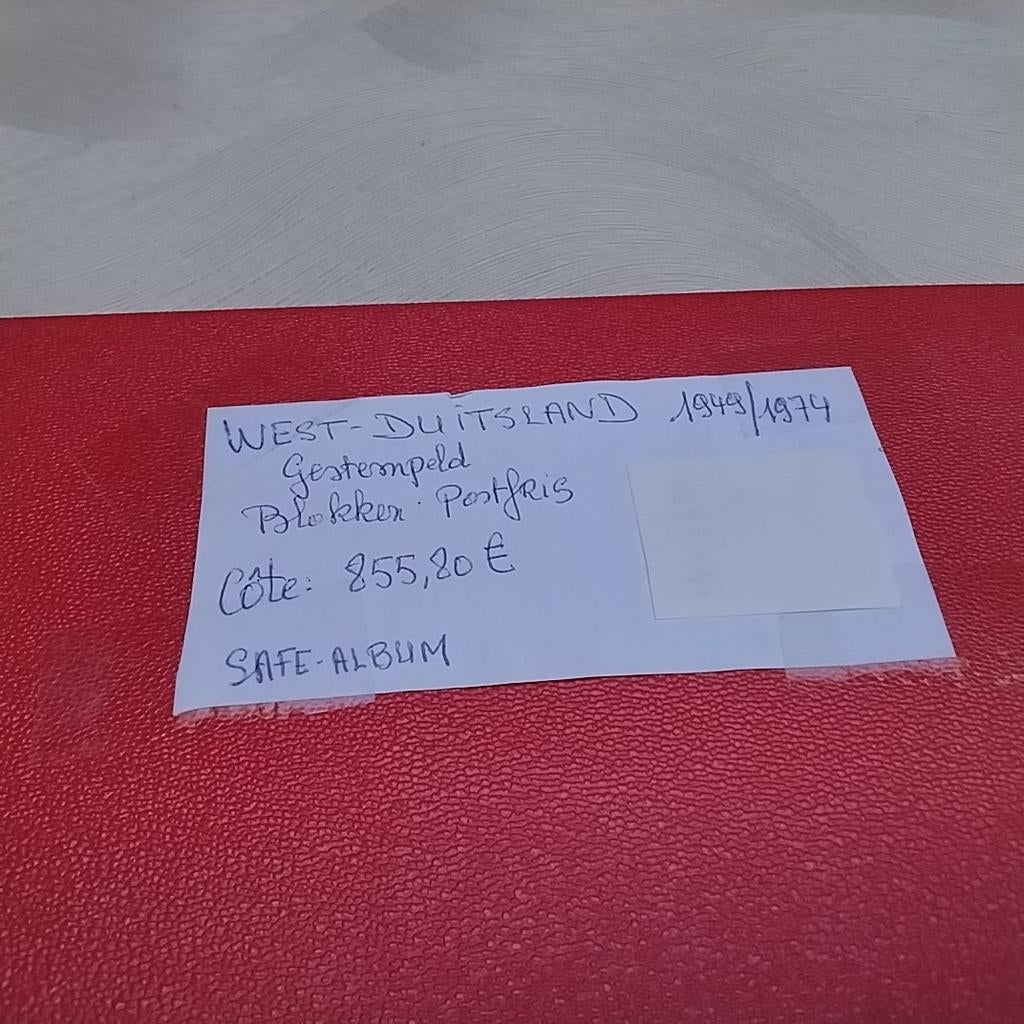 WEST-DUITSLAND 1949/1974
Gestempeld
Blokken: Postfris
Côte: 855,80 €
SAFE-ALBUM